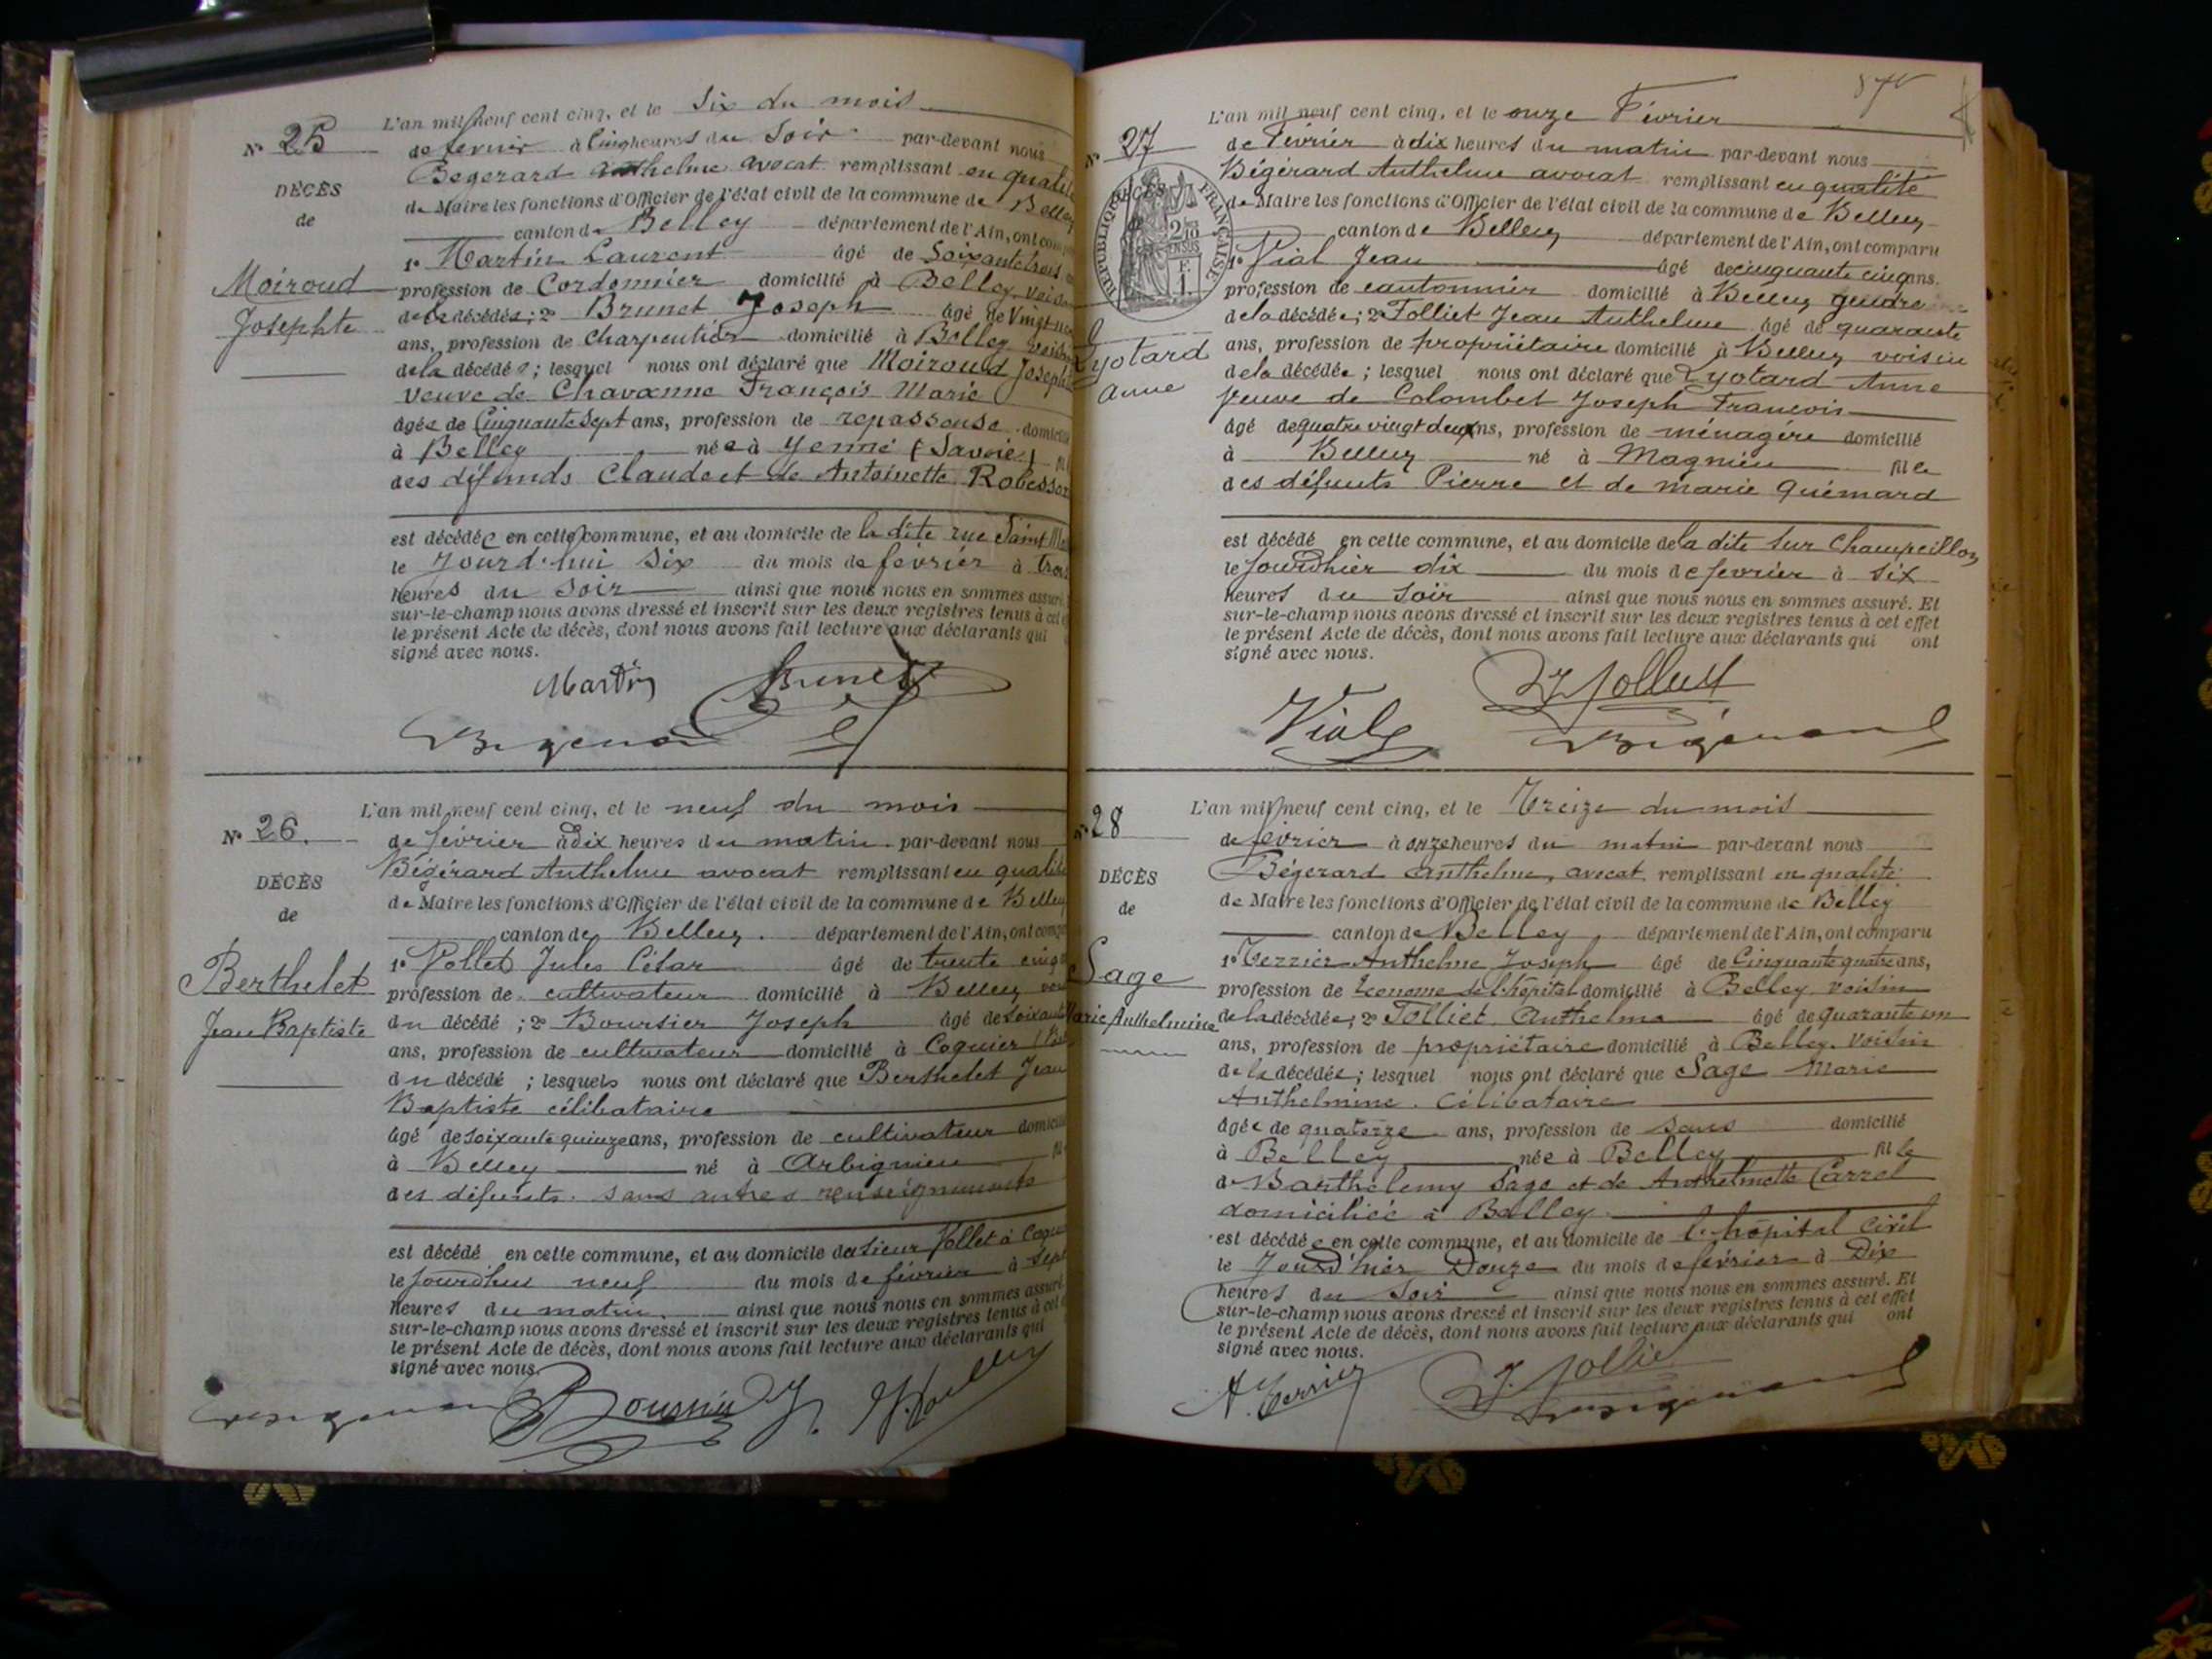 L'an mil neuf cent cinq, et le Six du mois
N° 25
de fevrier à Cinq heures du Soir par-devant nous
Bégérard Anthelme avocat remplissant en qualité
DÉCÈS
de Maire les fonctions d'Officier de l'état civil de la commune de Belley
de
canton de Belley département de l'Ain, ont comp
1° Martin Laurent âgé de Soixante trois
Moiroud
profession de Cordonnier domicilié à Belley voisin
Josephte
de la décédée; 2° Brunet Joseph âgé de Vingt
ans, profession de Charpentier domicilié à Belley voisin
de la décédée; lesquel nous ont déclaré que Moiroud Joseph
Veuve de Chavanne François Marie
âgée de Cinquante Sept ans, profession de repasseuse domicilié
à Belley née à Yenne (Savoie)
des défunds Claude et de Antoinette Robesson
est décédée en cette commune, et au domicile de la dite rue Saint
le Jourd'hui Six du mois de février à trois
heures du Soir ainsi que nous nous en sommes assuré
sur-le-champ nous avons dressé et inscrit sur les deux registres tenus à cet
le présent Acte de décès, dont nous avons fait lecture aux déclarants qui
signé avec nous.
Martin Brunet
Bégérard
L'an mil neuf cent cinq, et le neuf du mois
N° 26.
de février à Dix heures du matin par-devant nous
Bégérard Anthelme avocat remplissant en qualité
DÉCÈS
de Maire les fonctions d'Officier de l'état civil de la commune de Belley
de
canton de Belley département de l'Ain, ont comp
1° Pollet Jules César âgé de trente cinq
Berthelet
profession de cultivateur domicilié à Belley
Jean Baptiste
du décédé; 2° Boursier Joseph âgé de soixante
ans, profession de cultivateur domicilié à Coquier
du décédé; lesquels nous ont déclaré que Berthelet Jean
Baptiste célibataire
âgé de soixante quinze ans, profession de cultivateur domicilié
à Belley né à Arbignieu
des défunts. sans autres renseignements
est décédé en cette commune, et au domicile du sieur Pollet à
le Jourd'hui neuf du mois de février à sept
heures du matin ainsi que nous nous en sommes assuré
sur-le-champ nous avons dressé et inscrit sur les deux registres tenus à cet
le présent Acte de décès, dont nous avons fait lecture aux déclarants qui
signé avec nous.
Bégérard Boursier
L'an mil neuf cent cinq, et le onze Février
N° 27
de Février à dix heures du matin par-devant nous
Bégérard Anthelme avocat remplissant en qualité
DÉCÈS
RÉPUBLIQUE FRANÇAISE
de Maire les fonctions d'Officier de l'état civil de la commune de Belley
canton de Belley département de l'Ain, ont comparu
1° Vial Jean âgé de cinquante cinq ans.
profession de cantonnier domicilié à Belley gendre
de la décédée; 2° Folliet Jean Anthelme âgé de quarante
Lyotard
ans, profession de propriétaire domicilié à Belley voisin
Anne
de la décédée; lesquel nous ont déclaré que Lyotard Anne
Veuve de Colombet Joseph François
âgé de quatre vingt deux ans, profession de ménagère domicilié
à Belley né à Magnieu fille
des défunts Pierre et de Marie Guémard
est décédé en cette commune, et au domicile de la dite sur Champeillon
le Jourd'hier dix du mois de fevrier à six
heures du soir ainsi que nous nous en sommes assuré. Et
sur-le-champ nous avons dressé et inscrit sur les deux registres tenus à cet effet
le présent Acte de décès, dont nous avons fait lecture aux déclarants qui ont
signé avec nous.
Folliet
Vial Bégérard
L'an mil neuf cent cinq, et le Treize du mois
N° 28
de février à onze heures du matin par-devant nous
Bégerard Anthelme, avocat remplissant en qualité
DÉCÈS
de Maire les fonctions d'Officier de l'état civil de la commune de Belley
de
canton de Belley département de l'Ain, ont comparu
1° Terrier Anthelme Joseph âgé de Cinquante quatre ans,
Sage
profession de Econome de l'hôpital domicilié à Belley voisin
Marie Anthelmine
de la décédée; 2° Folliet Anthelme âgé de quarante un
ans, profession de propriétaire domicilié à Belley. Voisin
de la décédée; lesquel nous ont déclaré que Sage Marie
Anthelmine. Célibataire
âgée de quatorze ans, profession de sans domicilié
à Belley née à Belley fille
de Barthélemy Sage et de Anthelmette Carrel
domiciliée à Belley.
est décédée en cette commune, et au domicile de l'hôpital Civil
le Jourd'hier Douze du mois de février à Dix
heures du Soir ainsi que nous nous en sommes assuré. Et
sur-le-champ nous avons dressé et inscrit sur les deux registres tenus à cet effet
le présent Acte de décès, dont nous avons fait lecture aux déclarants qui ont
signé avec nous.
A. Terrier J. Folliet
Bégérard